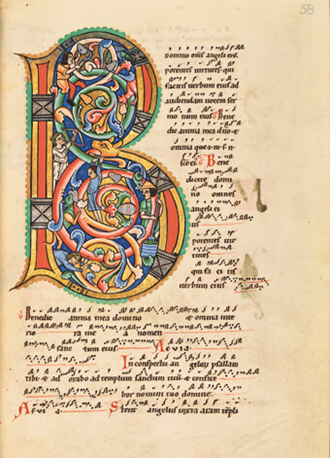 58
B
domino oms angeli eius
potentes uirtute qui
facitis uerbum eius ad
audiendam uocem ser
mo num eius Bene
dic anima mea dno &
omnia que
Bene
dicite domi
no omnes
angeli ei
us
potentes uir
qui fa
uerbum eius
Benedic anima mea domino & omnia inte
rio ra me a nomen
sanc tum eius A e u i a
In conspectu an psallam
tibi & ad orabo ad templum sanctum & confite
bor nomini tuo domine
A e u i a Stetit angelus iuxta aram templi